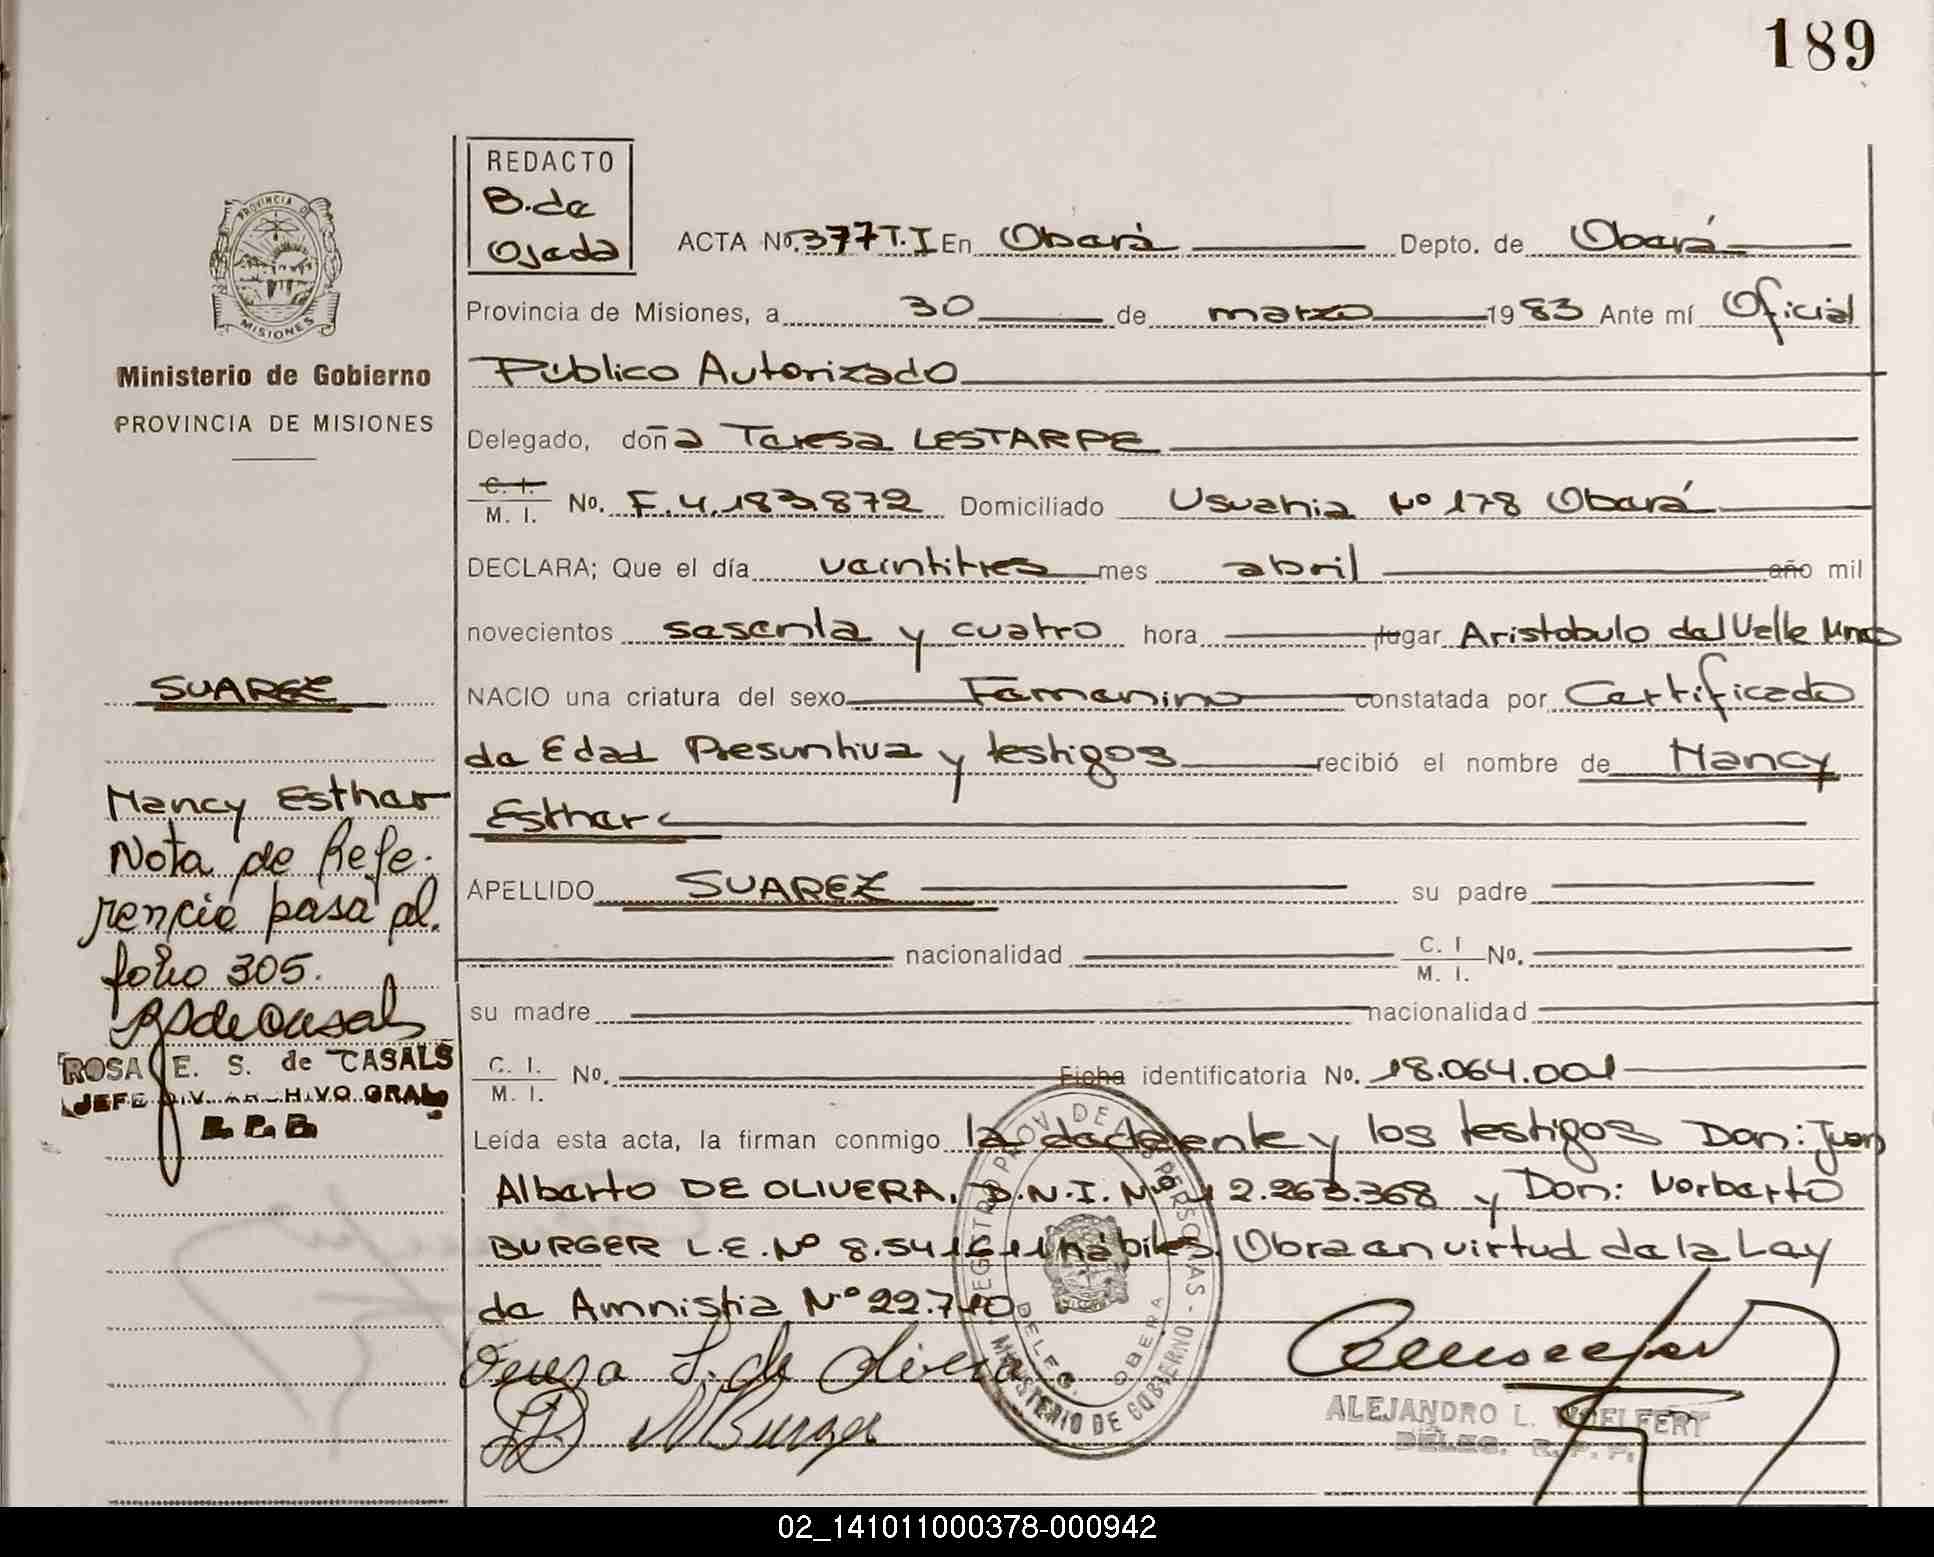 189
REDACTO
B. de
Ojeda
PROVINCIA DE
MISIONES
Ministerio de Gobierno
PROVINCIA DE MISIONES
ACTA No. 377 T.I En Oberá Depto. de Oberá
Provincia de Misiones, a 30 de marzo 1983 Ante mí Oficial
Público Autorizado
Delegado, doña Teresa LESTARPE
C. I.
M. I. No. F.4.183.872 Domiciliado Usuahia Nº 178 Oberá
DECLARA; Que el día veintitres mes abril año mil
novecientos sesenta y cuatro hora lugar Aristóbulo del Valle Mnes
NACIO una criatura del sexo Femenino constatada por Certificado
de Edad Presuntiva y testigos recibió el nombre de Nancy
Esther
APELLIDO SUAREZ su padre
nacionalidad C. I M. I. No.
su madre nacionalidad
C. I. M. I. No. Ficha identificatoria No. 18.064.001
Leída esta acta, la firman conmigo la declarente y los testigos Don: Juan
Alberto DE OLIVERA, D.N.I. Nº 12.263.368 y Don: Norberto
BURGER L.E. Nº 8.541.611 hábiles. Obra en virtud de la Ley
de Amnistia Nº 22.710
Teresa L. de Olivera
N Burger
SUAREZ
Nancy Esther
Nota de Refe-
rencia pasa al
folio 305.
RSdeCasals
ROSA E. S. de CASALS
JEFE DIV. ARCHIVO GRAL.
R. P. P.
REGISTRO PROV. DE LAS PERSONAS - MINISTERIO DE GOBIERNO
DELEG. OBERA
ALEJANDRO L. WOELFERT
DELEG. R. P. P.
02_141011000378-000942